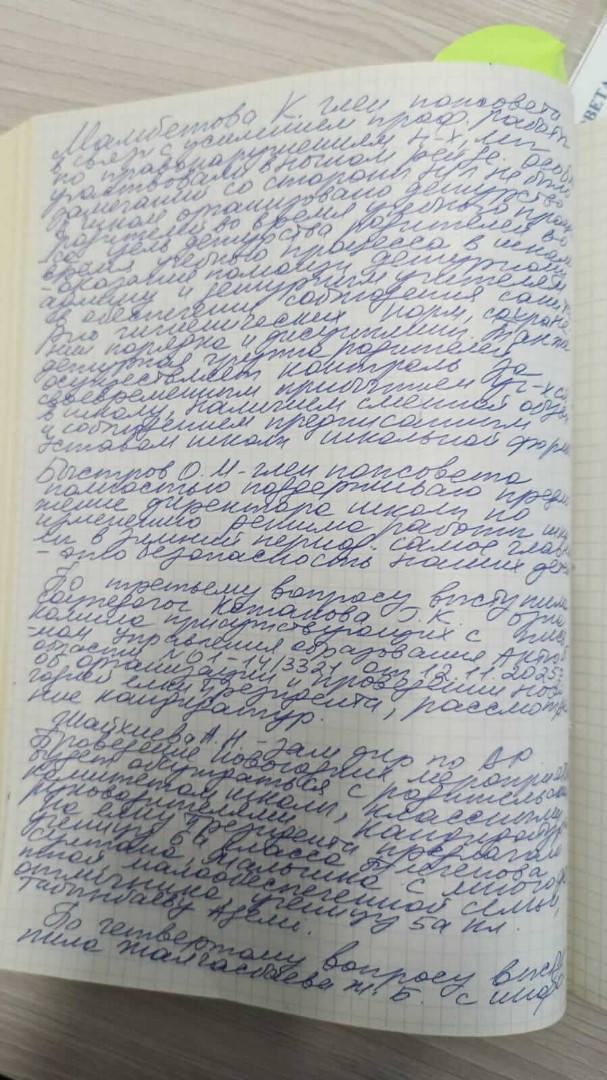 Мамбетова К. член попсовета
в связи с усилением проф. работы
по правонарушениям н-х, мы
участвовали в ночном рейде. Особых
замечаний со стороны не было
в школе организовано дежурство
родителей во время учебного проц
са. Цель дежурства родителей во
время учебного процесса в школе
- оказание помощи дежурному
админу и дежурным учителям
в обеспечении соблюдения сани
рно гигиенических норм, сохране
нии порядка и дисциплины. Также
дежурная группа родителей
осуществляет контроль за
своевременным прибытием уч-хся
в школу, наличием сменной обуви
и соблюдением предписанным
уставом школы школьной формы
Быстров О.М - член попсовета
полностью поддерживаю предло
жение директора школы по
изменению режима работы шко
лы в зимний период. самое главн
- это безопасность наших детей
По третьему вопросу выступила
соцпедагог Г.К. Она
ознакомила присутствующих с пись
мом Управления образования Актюб
области №01-14/3321 от 12.11.2025г
об организации и проведении ново
годней елки Президента, рассмотре
ние кандидатур.
Шайхиева А.Н. - Зам дир по ВР
Проведение новогодних мероприятий
будет обсуждаться с родительским
комитетом школы, классными
руководителями, кандидатуру
на елку Президента предлагаю
ученицу 6а класса
Султана, мальчика с многоде
тной малообеспеченной семьи,
отличника, ученицу 5а кл.
Табынбаеву Адели.
По четвертому вопросу высту
пила Жалгасбаева Ж. Б. с инфо